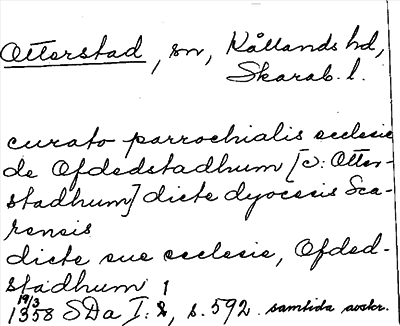 Otterstad, sn, Kållands hd,
Skarab. l.
curato parrochialis ecclesie
de Ofdedstadhum [ɔ: Otter-
stadhum] dicte dyocesis Sca-
rensis
dicte sue ecclesie, Ofded-
stadhum
19/3
1358 SDa I: 2, s. 592. samtida avskr.